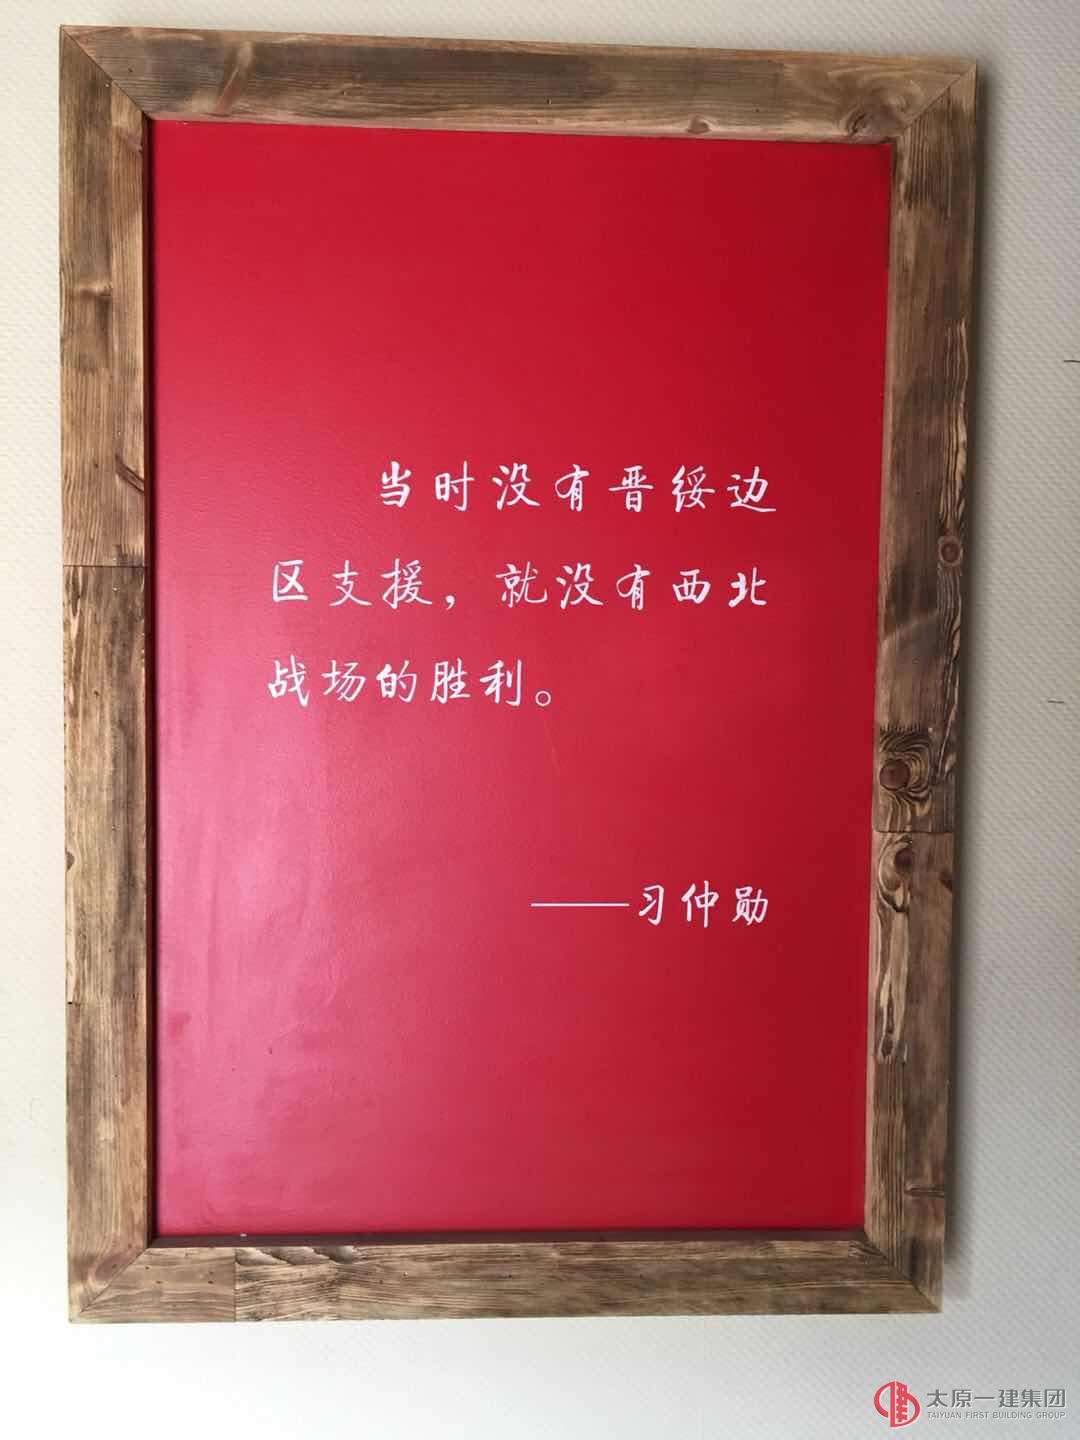 当时没有晋绥边
区支援，就没有西北
战场的胜利。
——习仲勋
太原一建集团
TAIYUAN FIRST BUILDING GROUP